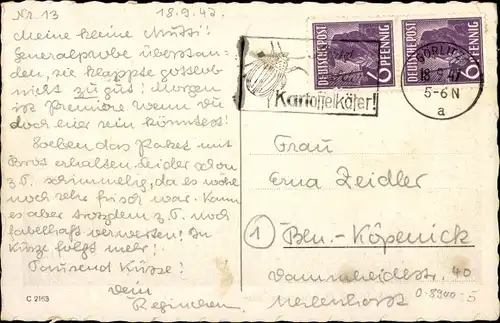 Nr. 13
18.9.47.
Meine kleine Mutti!
Generalprobe überstan-
den, sie klappte gottlob
nicht zu gut! Morgen
ist Premiere wenn Du
doch hier sein könntest!
Soeben das Paket mit
Brot erhalten leider schon
z.T. schimmelig, da es wohl
noch sehr frisch war. Kann
es aber trotzdem z.T. noch
fabelhaft verwerten! In
Kürze folgt mehr!
Tausend Küsse!
Dein
Reginchen.
C 2163
DEUTSCHE POST
6 PFENNIG
DEUTSCHE POST
6 PFENNIG
Kartoffelkäfer!
GÖRLITZ
18.9.47
5-6 N
a
Frau
Erna Zeidler
1 Bln.-Köpenick
40
D-8900